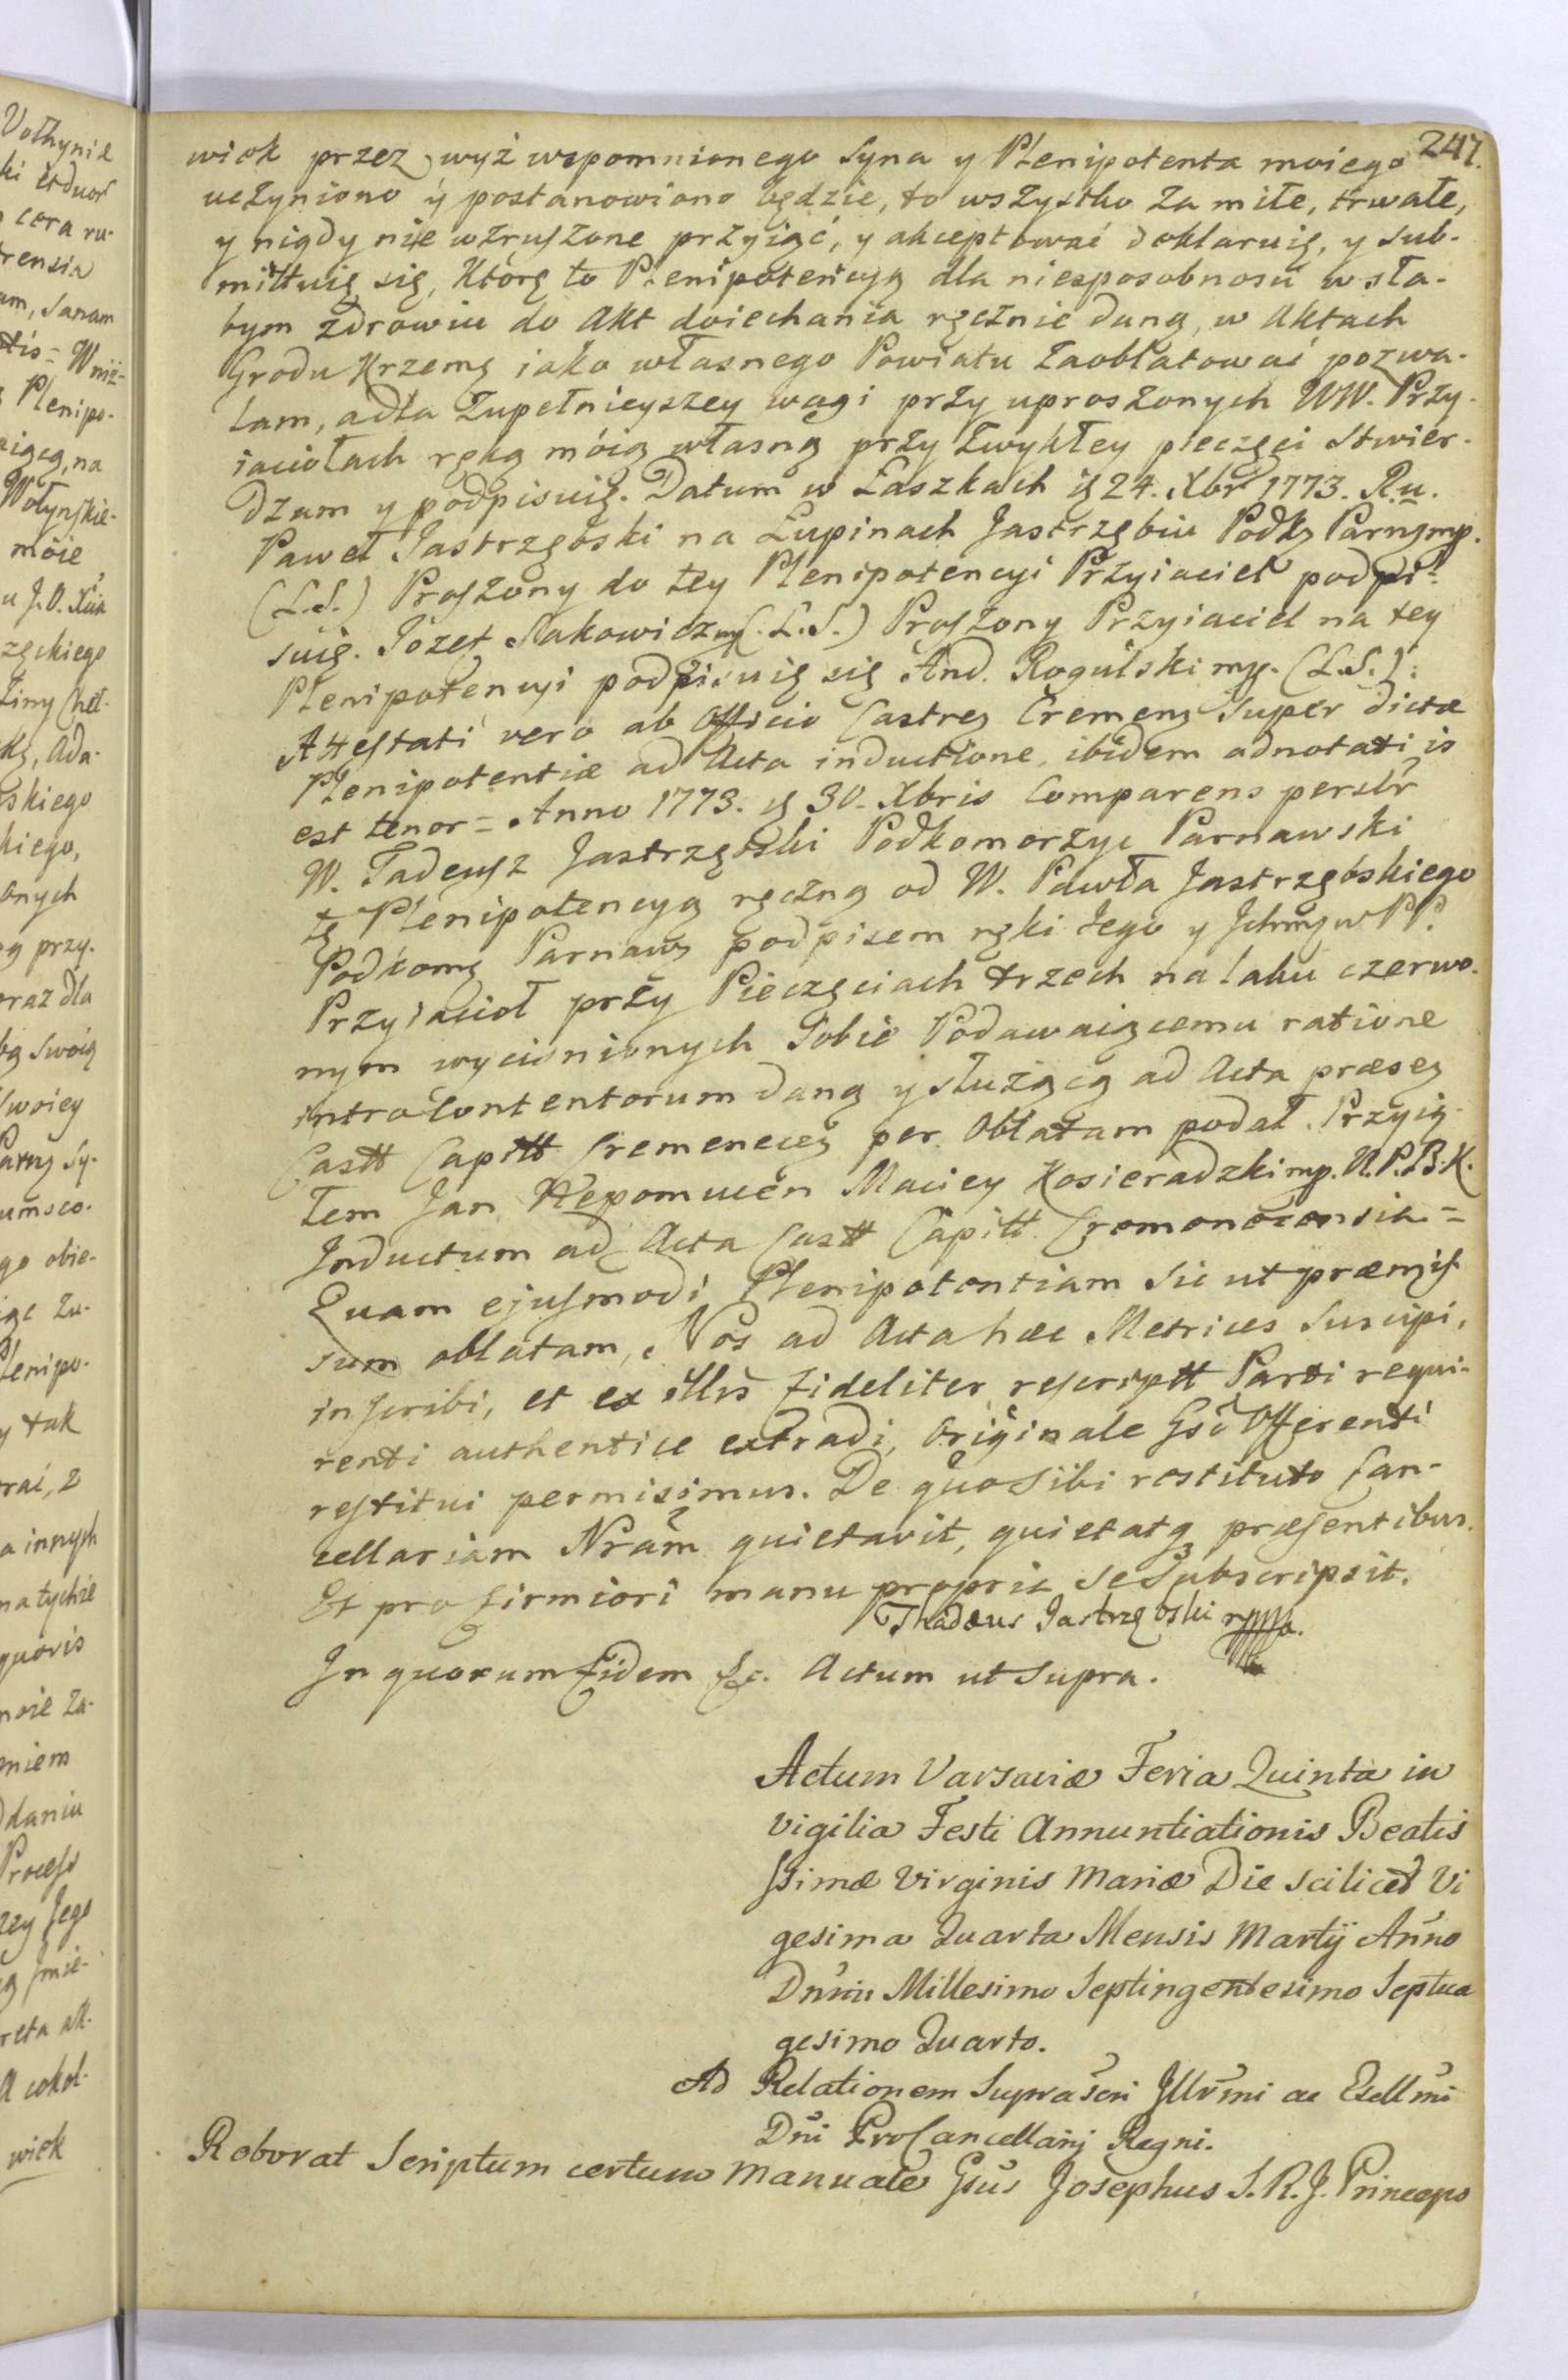 247.
wiek przez wyż wspomnionego Syna y Plenipotenta moiego
uczyniono y postanowiono będzie, to wszystko za miłe, trwałe,
y nigdy nie wzruszone przyiąć, y akceptować deklaruię, y sub-
mittuię się, Którą to Plenipotencyą dla niesposobności w sła-
bym zdrowiu do Akt doiechania ręcznie daną, w Aktach
Grodu Krzemę iako własnego Powiatu zaoblatować pozwa-
lam, a dla zupełnieyszey wagi przy uproszonych WW. Przy-
iaciołach ręką móią własną przy zwykłey pieczęci stwier-
dzam y podpisuię. Datum w Łaszkach ię 24. Xbr 1773. R.u.
Paweł Jastrzębski na Łupinach Jastrzębiu Podkę Parnę mp.
(L.S.) Proszony do tey Plenipotencyi Przyiaciel podpi-
suię. Józef Sakowicz mp (L.S.) Proszony Przyiaciel na tey
Plenipotencyi podpisuię się And. Rogulski mp. (L.S.):
Attestati vero ab Officio Castreę Cremenę Super dictæ
Plenipotentiæ ad Acta inductione, ibidem adnotati, is
est tenor = Anno 1773. ię 30. Xbris Comparens persłr
W. Tadeusz Jastrzębski Podkomorzyc Parnawski
tę Plenipotencyą ręczną od W. Pawła Jastrzębskiego
Podkomę Parnawę podpisem ręki Jego y Jchmę w PP.
Przyiacioł przy Pieczęciach trzech na laku czerwo-
nym wycisnionych Sobie Podawaiącemu ratione
introcontentorum daną y służącą ad Acta præseę
Castt Capitt Cremeneceę per Oblatam podał. Przyią-
łem Jan Nepomucen Maciey Kosieradzki mp. N.P.B.K.
Inductum ad Acta Castt Capitt Cremenecensia =
Quam ejusmodi Plenipotentiam sic ut præmis-
sum oblatam, Nos ad Acta hæc Metrices Suscipi,
inscribi, et ex illis fideliter rescriptt Parti requi-
renti authentice extradi, Originale Gsô Offerenti
restitui permisimus. De quo Sibi restituto Can-
cellariam Nrãm quietavit, quietatq præsentibus.
Et pro firmiori manu propria se Subscripsit.
Thadæus Jastrzębski mp.
In quorum fidem &c. Actum ut Supra.
Actum Varsaviæ Feria Quinta in
Vigilia Festi Annuntiationis Beatis
ssimæ Virginis Mariæ Die scilicet Vi
gesima Quarta Mensis Martij Anno
Dñni Millesimo Septingentesimo Septua
gesimo Quarto.
Ad Relationem Suprascri Jllrmi ac Excllmi
Dñi ProCancellarij Regni.
Roborat Scriptum certum Manuale Gsus Josephus S.R.J. Princeps